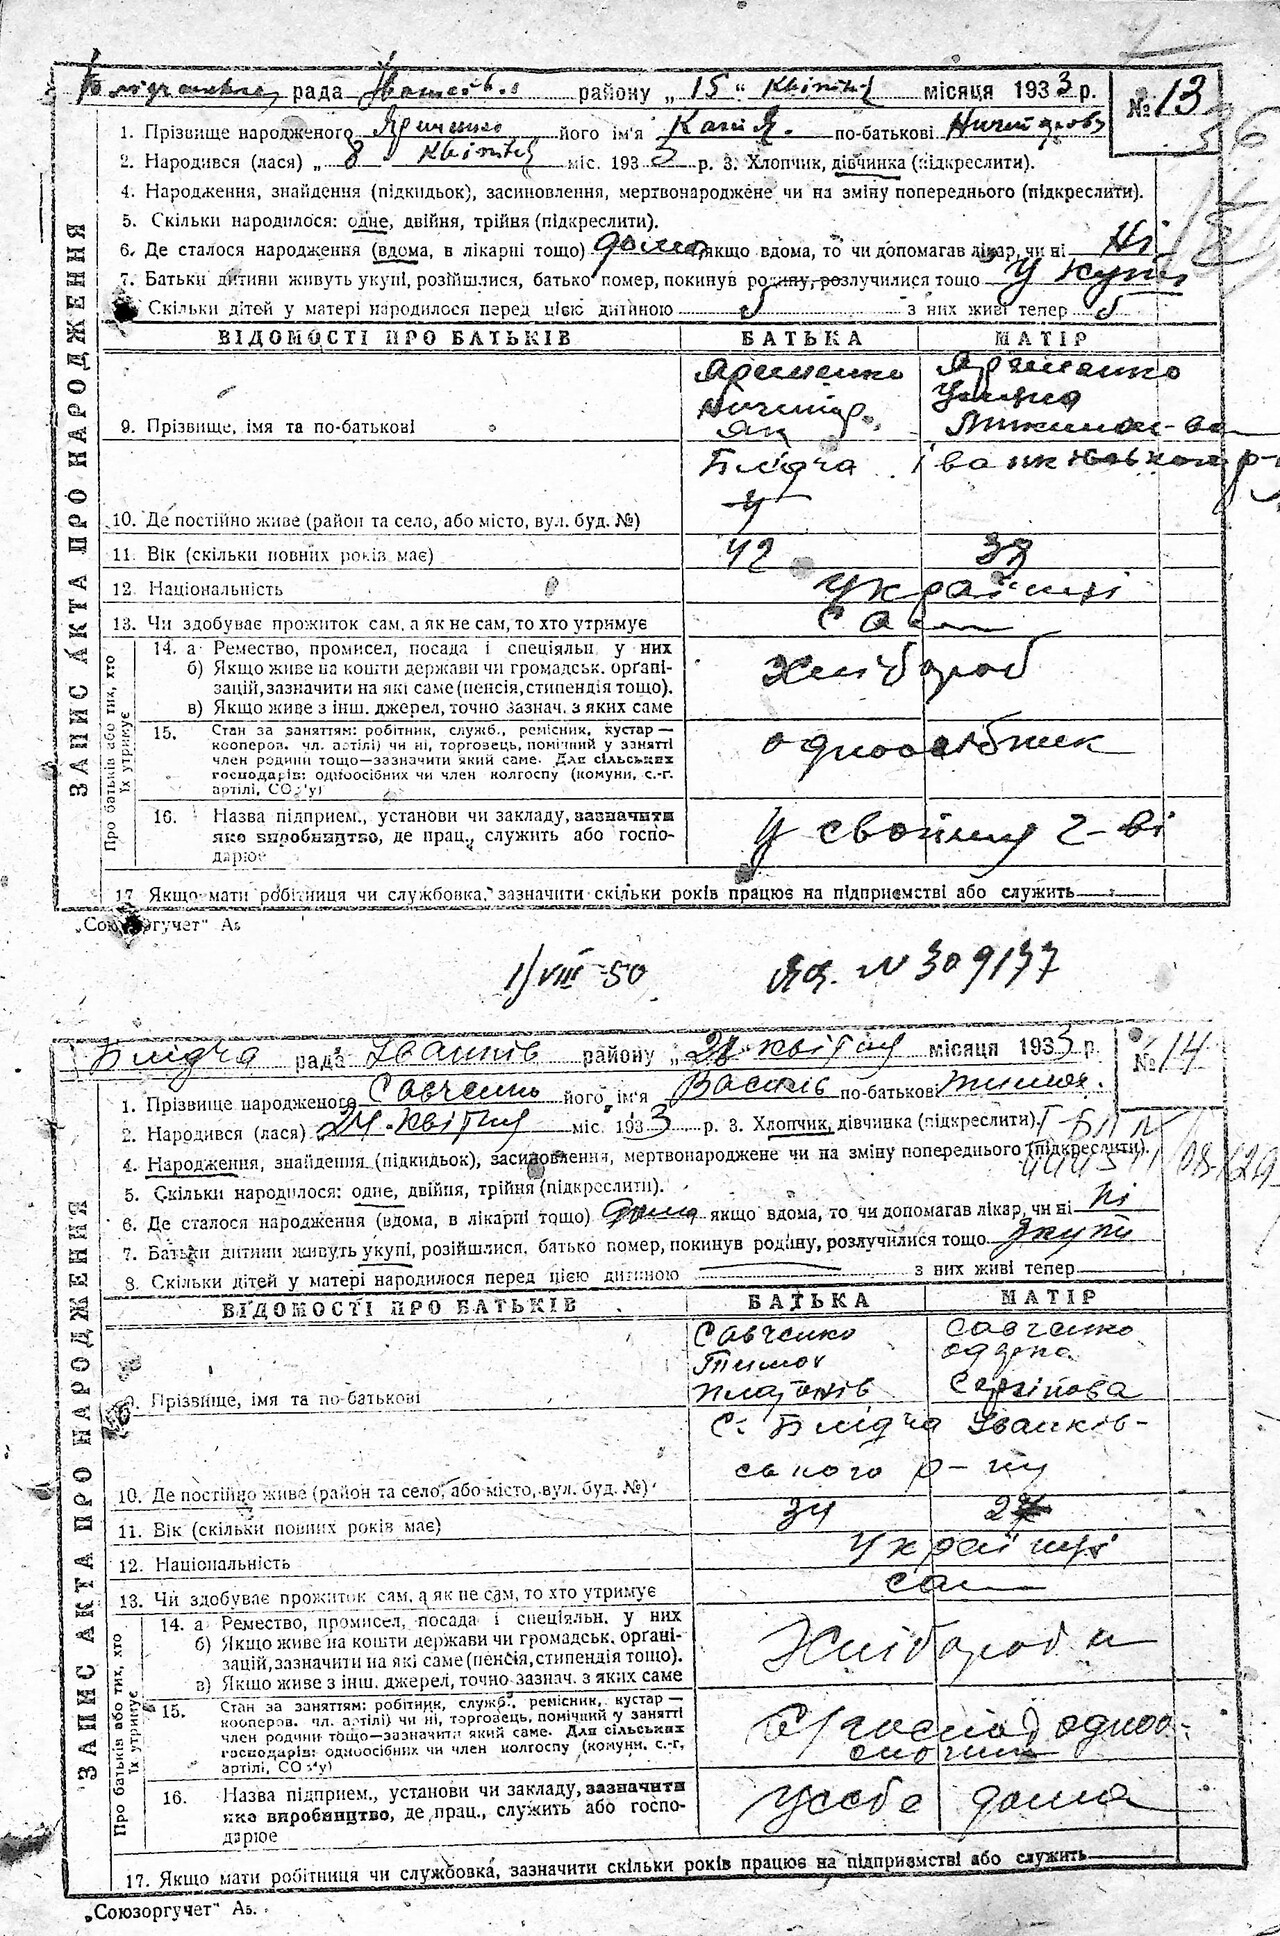 рада району „ 15 " Квітня місяця 1933 р. № 13
1. Прізвище народженого його ім'я по-батькові
2. Народився (лася) „ 8 Квітня міс. 1933 р. 3. Хлопчик, дівчинка (підкреслити).
4. Народження, знайдення (підкидьок), засиновлення, мертвонароджене чи на зміну попереднього (підкреслити).
5. Скільки народилося: одне, двійня, трійня (підкреслити).
6. Де сталося народження (вдома, в лікарні тощо) дома якщо вдома, то чи допомагав лікар, чи ні Ні
7. Батьки дитини живуть укупі, розійшлися, батько помер, покинув родину, розлучилися тощо у купі
Скільки дітей у матері народилося перед цією дитиною з них живі тепер
ЗАПИС АКТА ПРО НАРОДЖЕННЯ
ВІДОМОСТІ ПРО БАТЬКІВ БАТЬКА МАТІР
Яременко Яременко
9. Прізвище, імя та по-батькові
Блідча
10. Де постійно живе (район та село, або місто, вул. буд. №)
11. Вік (скільки повних років має) 42
12. Національність Українці
13. Чи здобуває прожиток сам, а як не сам, то хто утримує сам
Про батьків або тих, хто їх утримує
14. а Ремество, промисел, посада і спеціяльн. у них
б) Якщо живе на кошти держави чи громадськ. органі-
зацій, зазначити на які саме (пенсія, стипендія тощо).
в) Якщо живе з інш. джерел, точно зазнач. з яких саме
Хлібороб
15. Стан за заняттям: робітник, служб., ремісник, кустар —
кооперов. чл. артілі) чи ні, торговець, помічний у занятті
член родини тощо—зазначити який саме. Для сільських
господарів: одноосібних чи член колгоспу (комуни, с.-г.
артілі, СОЗ'у)
одноосібник
16. Назва підприєм., установи чи закладу, зазначити
яке виробництво, де прац., служить або госпо-
дарює
17. Якщо мати робітниця чи службовка, зазначити скільки років працює на підприємстві або служить
„Союзоргучет"
1/VIII-50 N 309137
Блідча рада Іванків району „ квітня місяця 1933 р. № 14
1. Прізвище народженого Савченко його ім'я Василь по-батькові Тимох.
2. Народився (лася) 24 квітня міс. 1933 р. 3. Хлопчик, дівчинка (підкреслити).
4. Народження, знайдення (підкидьок), засиновлення, мертвонароджене чи на зміну попереднього (підкреслити).
5. Скільки народилося: одне, двійня, трійня (підкреслити).
6. Де сталося народження (вдома, в лікарні тощо) дома якщо вдома, то чи допомагав лікар, чи ні ні
7. Батьки дитини живуть укупі, розійшлися, батько помер, покинув родину, розлучилися тощо укупі
8. Скільки дітей у матері народилося перед цією дитиною з них живі тепер
ЗАПИС АКТА ПРО НАРОДЖЕННЯ
ВІДОМОСТІ ПРО БАТЬКІВ БАТЬКА МАТІР
Савченко Савченко
Тимох
Прізвище, імя та по-батькові Платонів
С. Блідча Іванків-
ського р-ну
10. Де постійно живе (район та село, або місто, вул. буд. №)
11. Вік (скільки повних років має) 34
12. Національність Українці
13. Чи здобуває прожиток сам, а як не сам, то хто утримує сам
Про батьків або тих, хто їх утримує
14. а Ремество, промисел, посада і спеціяльн. у них
б) Якщо живе на кошти держави чи громадськ. органі-
зацій, зазначити на які саме (пенсія, стипендія тощо).
в) Якщо живе з інш. джерел, точно зазнач. з яких саме
Хлібороби
15. Стан за заняттям: робітник, служб., ремісник, кустар —
кооперов. чл. артілі) чи ні, торговець, помічний у занятті
член родини тощо—зазначити який саме. Для сільських
господарів: одноосібних чи член колгоспу (комуни, с.-г.
артілі, СОЗ'у)
16. Назва підприєм., установи чи закладу, зазначити
яке виробництво, де прац., служить або госпо-
дарює
у себе дома
17. Якщо мати робітниця чи службовка, зазначити скільки років працює на підприємстві або служить
„Союзоргучет"